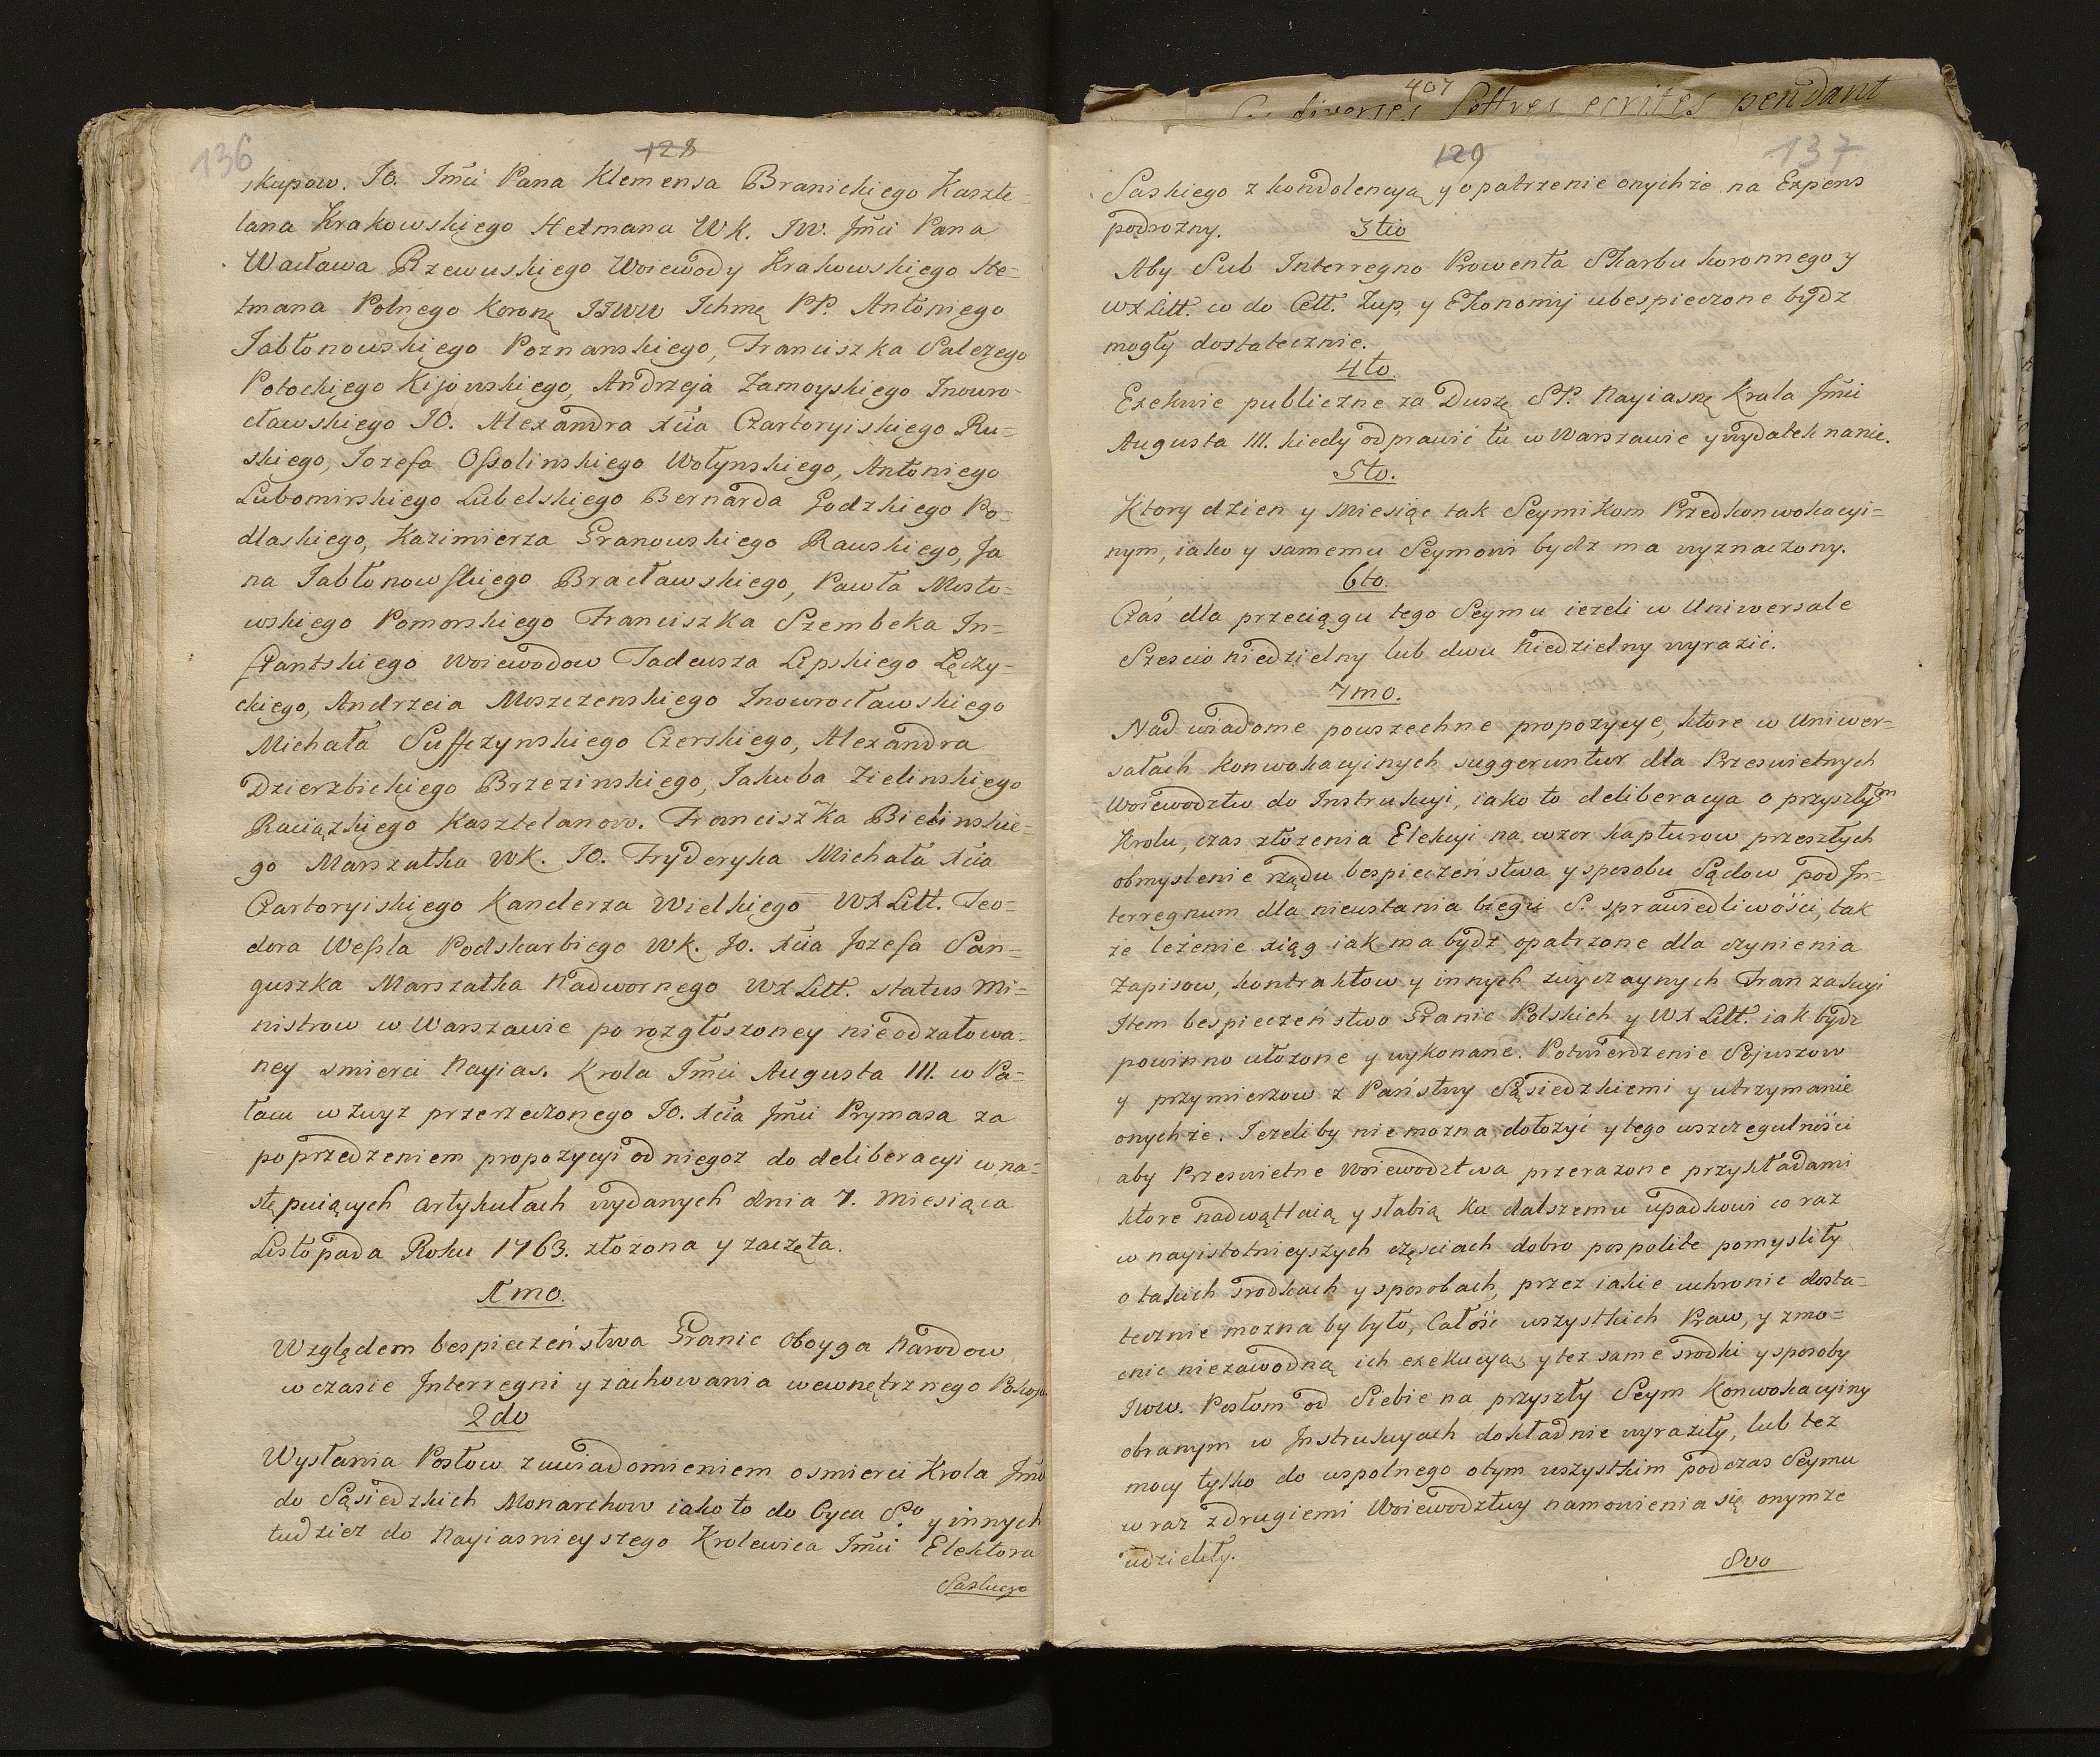 136
128
skupow. JO. Jmći Pana Klemensa Branickiego Kaszte-
lana Krakowskiego Hetmana WK. JW. Jmći Pana
Wacława Rzewuskiego Woiewody Krakowskiego He-
tmana Polnego Koronę JJWW Ichmę PP. Antoniego
Jabłonowskiego Poznanskiego, Franciszka Salezego
Potockiego Kijowskiego, Andrzeja Zamoyskiego Inowro-
cławskiego JO. Alexandra Xcia Czartoryiskiego Ru-
skiego, Jozefa Ossolinskiego Wołynskiego, Antoniego
Lubomirskiego Lubelskiego Bernarda Godzkiego Po-
dlaskiego, Kazimierza Granowskiego Rawskiego, Ja
na Jabłonowskiego Bracławskiego, Pawła Mosto-
wskiego Pomorskiego Franciszka Szembeka In-
flantskiego Woiewodow Tadeusza Lipskiego Łęczy-
ckiego, Andrzeia Moszczenskiego Inowrocławskiego
Michała Suffczynskiego Czerskiego, Alexandra
Dzierzbickiego Brzezinskiego, Jakuba Zielinskiego
Raciązkiego Kasztelanow. Franciszka Bielinskie-
go Marszałka WK. JO. Fryderyka Michała Xcia
Czartoryiskiego Kanclerza Wielkiego WX Litt. Teo-
dora Wessla Podskarbiego WK. JO. Xcia Jozefa San-
guszka Marszałka Nadwornego WX Litt. status Mi-
nistrow w Warszawie po rozgłoszoney nieodzałowa-
ney smierci Nayias. Krola Jmći Augusta III. w Pa-
łacu wzwyz przerzeczonego JO. Xcia Jmći Prymasa za
poprzedzeniem propozycyi od niegoz do deliberacyi w na-
stępuiących artykułach wydanych dnia 7. Miesiąca
Listopada Roku 1763. złozona y zaczęta.
1mo.
Względem bespieczeństwa Granic Oboyga Narodow
w czasie Interregni y zachowania wewnętrznego Pokoju.
2do
Wysłania Posłow z uwiadomieniem o smierci Krola Jmći
do Sąsiedzkich Monarchow iako to do Oyca S.º y innych
tudziez do Nayiasnieyszego Krolewica Jmći Elektora
Saskiego
407
diverses Lettres ecrites pendant
129
137
Saskiego z kondolencyą y opatrzenie onychże na Expens
podrozny.
3tio
Aby Sub Interregno Prowenta Skarbu Koronnego y
WX Litt. co do Cełł. Zup, y Ekonomij ubespieczone bydz
mogły dostatecznie.
4to.
Exekwie publiczne za Duszę SP. Nayiasnę Krala Jmći
Augusta III. kiedy odprawić tu w Warszawie y wydatek nanie.
5to.
Ktory dzien y Miesiąc tak Seymikom Przedkonwokacyi-
nym, iako y samemu Seymowi bydz ma wyznaczony.
6to.
Czas dla przeciągu tego Seymu iezeli w Uniwersale
Szescio niedzielny lub dwu niedzielny wyrazić.
7mo.
Nad wiadome powszechne propozycye, ktore w Uniwer-
sałach Konwokacyinych suggeruntur dla Przeswietnych
Woiewodztw do Instrukcyi, iako to deliberacya o przyszłym
Krolu, czas złozenia Elekcyi na wzor kapturow przeszłych
obmyslenie rządu bespieczeństwa y sposobu Sądow pod In-
terregnum dla nieustania biegu S. sprawiedliwości, tak
ze leżenie xiąg iak ma bydz opatrzone dla czynienia
Zapisow, kontraktow y innych zwyczaynych Tranzakcyi
Item bespieczeństwo Granic Polskich y WX Litt. iak bydz
powinno ułozone y wykonane. Potwierdzenie Sojuszow
y przymierzow z Państwy Sąsiedzkiemi y utrzymanie
onychże. Jezeliby nie mozna dołozyć y tego wszczegulności
aby Przeswietne Woiewodztwa przerazone przykładami
ktore nadwątlaią y słabią ku dalszemu upadkowi co raz
w nayistotnieyszych częsciach dobro pospolite pomysliły
o takich srodkach y sposobach, przez iakie uchronic dosta-
tecznie mozna by było, Całość wszystkich Praw, y zmo-
cnic niezawodną ich exekucyą, y tez same srodki y sposoby
JWW. Posłom od Siebie na przyszły Seym Konwokacyiny
obranym w Instrukcyach dokładnie wyraziły, lub tez
mocy tylko do wspolnego o tym wszystkim podczas Seymu
wraz z drugiemi Woiewodztwy namowienia się onymze
udzieliły.
8vo